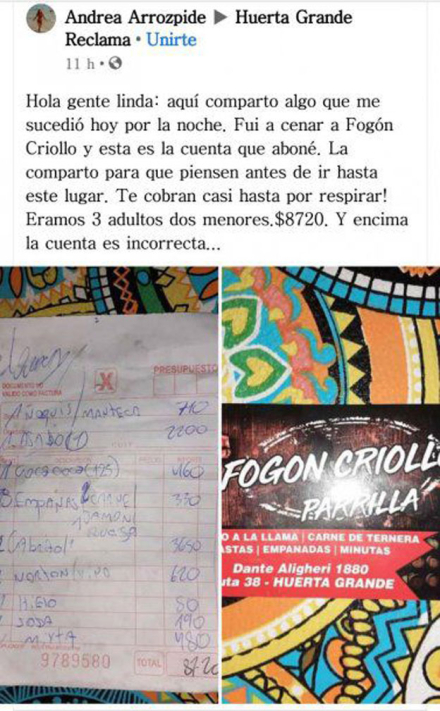 Andrea Arrozpide ▶ Huerta Grande
Reclama • Unirte
11 h •
Hola gente linda: aquí comparto algo que me
sucedió hoy por la noche. Fui a cenar a Fogón
Criollo y esta es la cuenta que aboné. La
comparto para que piensen antes de ir hasta
este lugar. Te cobran casi hasta por respirar!
Eramos 3 adultos dos menores.$8720. Y encima
la cuenta es incorrecta...
X
PRESUPUESTO
DOCUMENTO NO
VALIDO COMO FACTURA
1 Ñoquis/manteca 710
2200
460
3 Empanas 330
Jamon
Queso
3650
Norton 620
Hielo 80
Soda 190
Mixta 480
9789580
TOTAL 8720
FOGON CRIOLL
PARRILLA
O A LA LLAMA | CARNE DE TERNERA
STAS | EMPANADAS | MINUTAS
Dante Aligheri 1880
uta 38 - HUERTA GRANDE